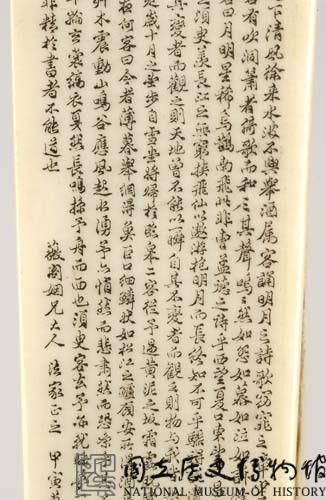 下清風徐來水波不興舉酒属客誦明月之詩歌窈窕之
有吹洞簫者倚歌而和之其聲嗚嗚然如怨如慕如泣如
曰月明星稀烏鵲南飛此非曹孟德之詩乎西望夏口東
之須臾羨長江之無窮挾飛仙以遨游抱明月而長終知不可乎驟
其變者而觀之則天地曾不能以一瞬自其不變者而觀之則物與我
是歲十月之望步自雪堂將歸於臨皋二客從予過黃泥之坂霜
如何客曰今者薄暮舉網得魚巨口細鱗狀如松江之鱸顧安所
木震動山鳴谷應風起水湧予亦悄然而悲肅然而恐凜
輪玄裳縞衣戛然長鳴掠予舟而西也須臾客去予亦就
非精於書者不能道也
薇閣姻兄大人 法家正之 甲寅
國立歷史博物館
NATIONAL MUSEUM OF HISTORY